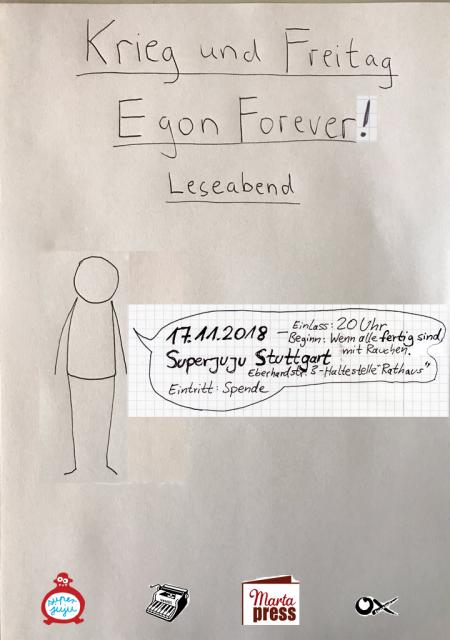 Krieg und Freitag
Egon Forever!
Leseabend
17.11.2018 – Einlass: 20 Uhr
Beginn: Wenn alle fertig sind
mit Rauchen.
Superjuju Stuttgart
Eberhardstr. 3 - Haltestelle "Rathaus"
Eintritt: Spende
super
juju
Marta
press
OX